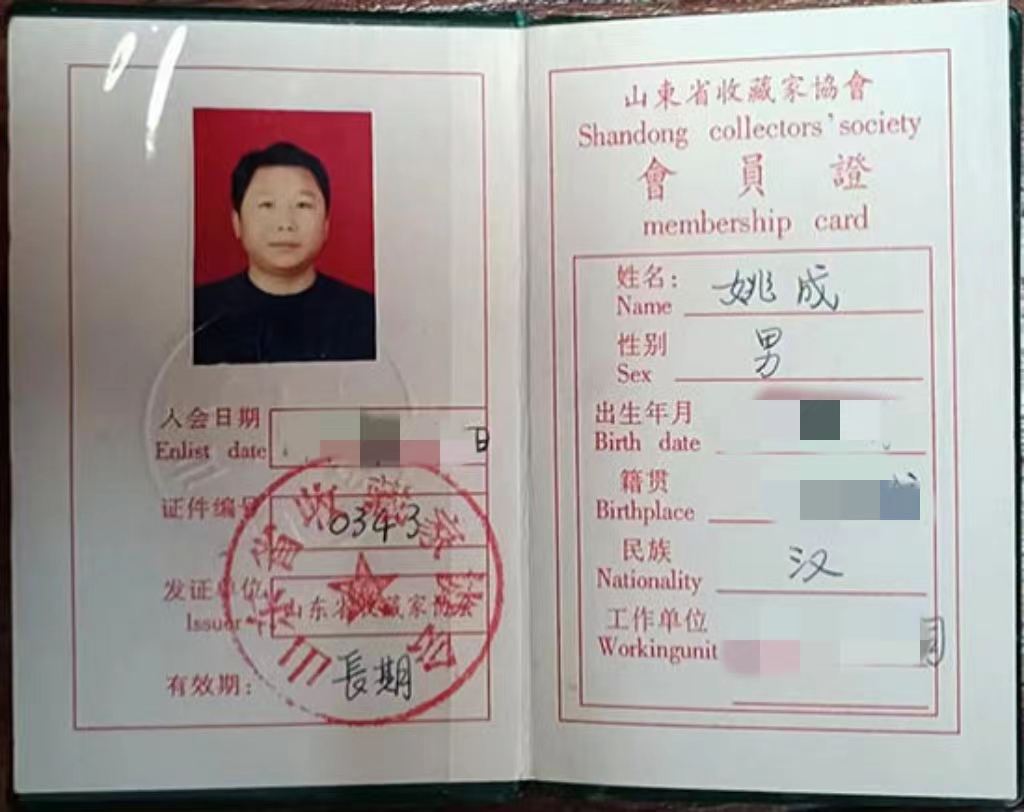 入会日期
Enlist date
日
证件编号
0343
发证单位
Issuer
山东省收藏家协会
有效期：
長期
山東省收藏家協會
Shandong collectors' society
會員證
membership card
姓名：
Name
姚成
性别
Sex
男
出生年月
Birth date
籍贯
Birthplace
民族
Nationality
汉
工作单位
Workingunit
司